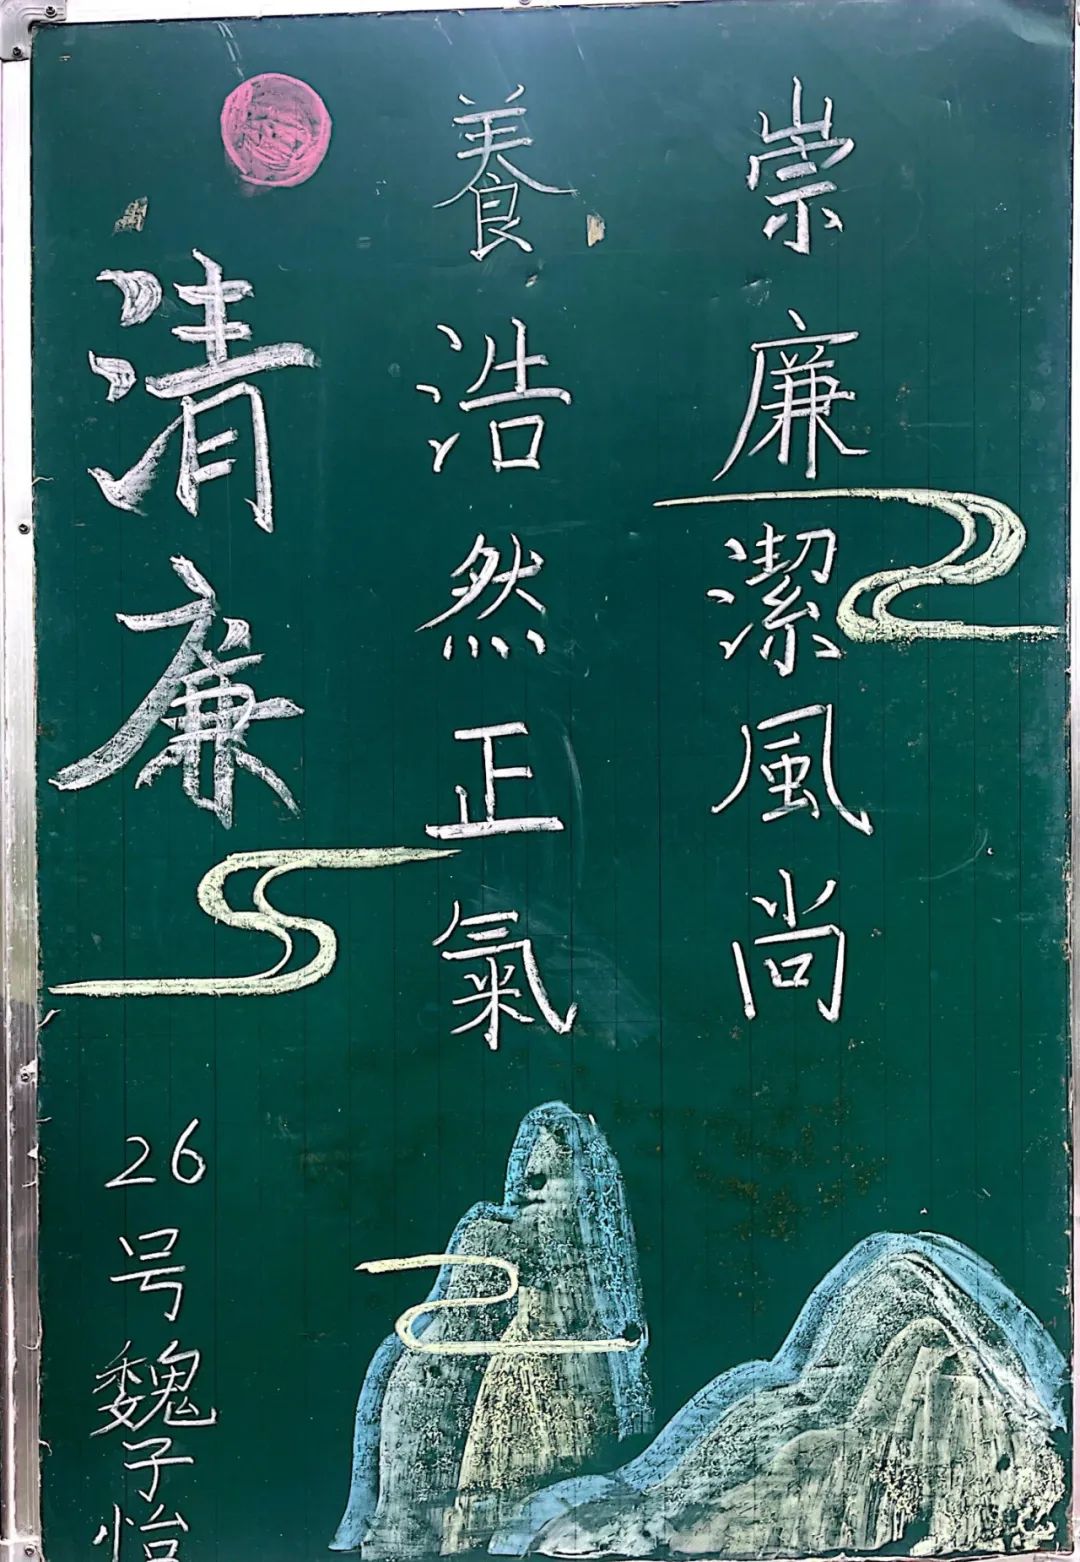 崇廉潔風尚
養浩然正氣
清廉
26号魏子怡